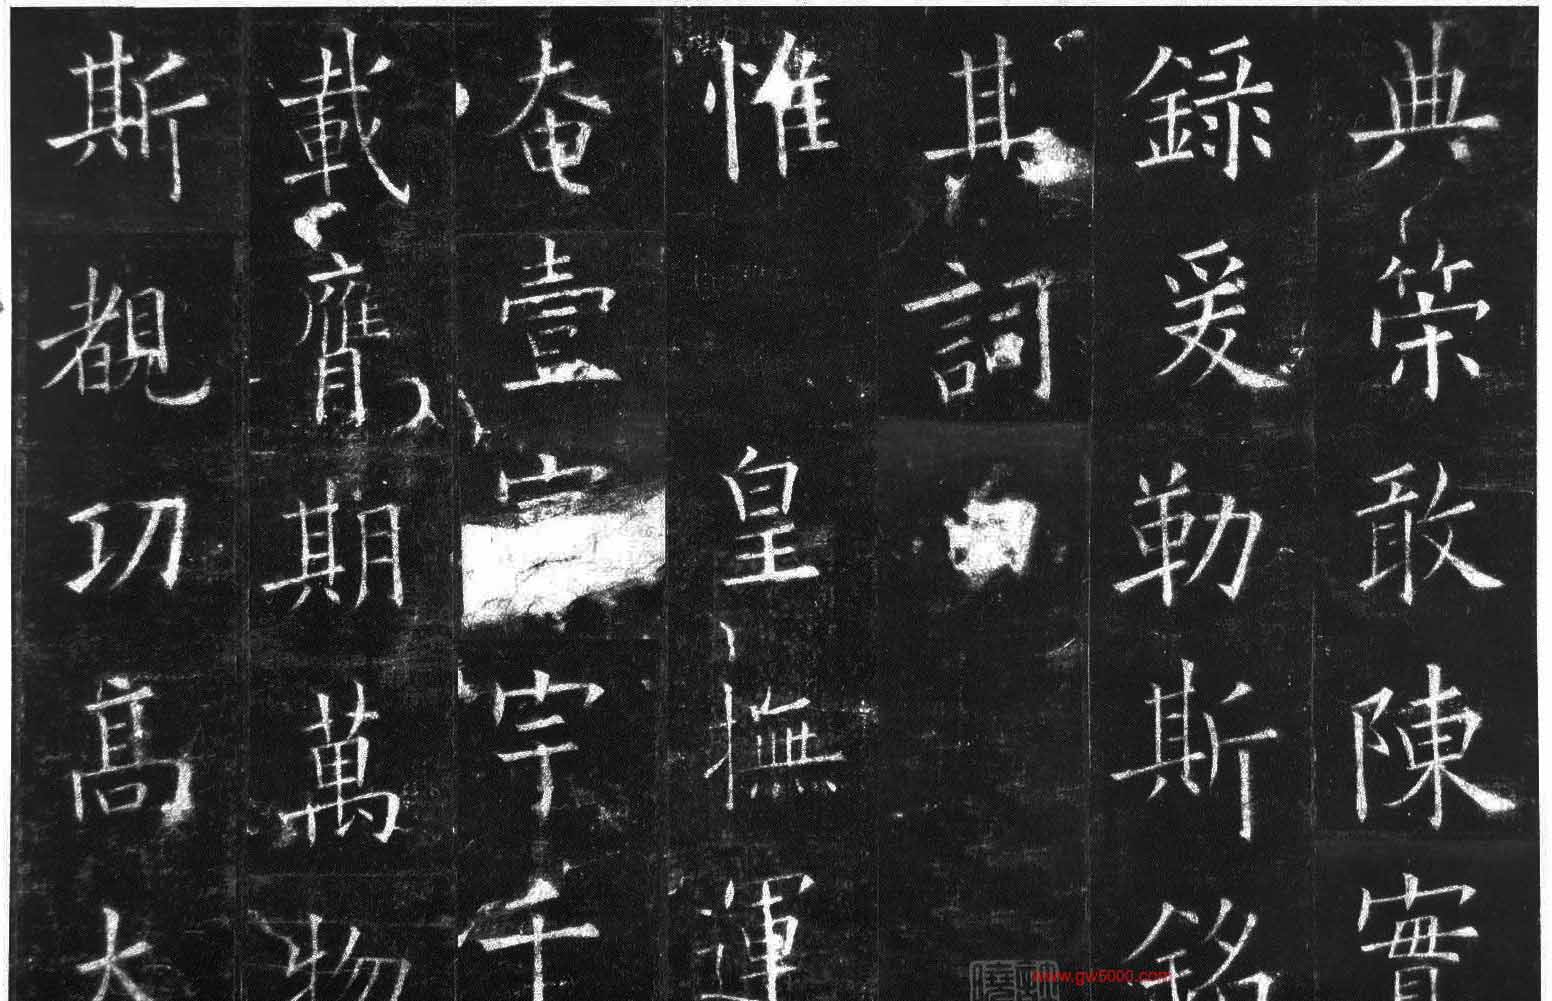 典策敢陳實
錄爰勒斯銘
其詞曰
惟皇撫運
奄壹寰宇千
載膺期萬物
斯覩功高大
www.gw5000.com